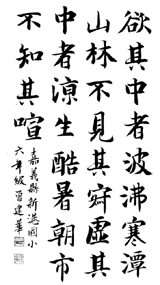 欲其中者波沸寒潭
山林不見其寂虛其
中者涼生酷暑朝市
不知其喧
嘉義縣新港國小
六年級曾建華